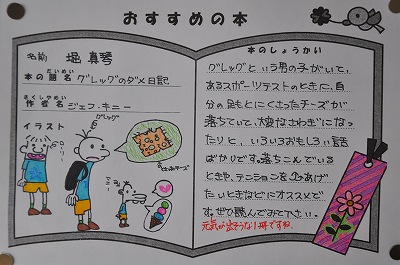 おすすめの本
名前 堀 真琴
だいめい
本の題名 グレッグのダメ日記
さくしゃめい
作者名 ジェフ・キニー
イラスト
グレッグ
本のしょうかい
グレッグという男の子がいて、
あるスポーツテストのときに、自
分の足もとにくさったチーズが
落ちていて、大変なさわぎになっ
たりと、いろいろおもしろい話
ばかりです。落ちこんでいる
ときや、テンションを上げ
たいときなどにオススメで
す。ぜひ読んでみて下さい。
元気が出そうな1冊ですね。